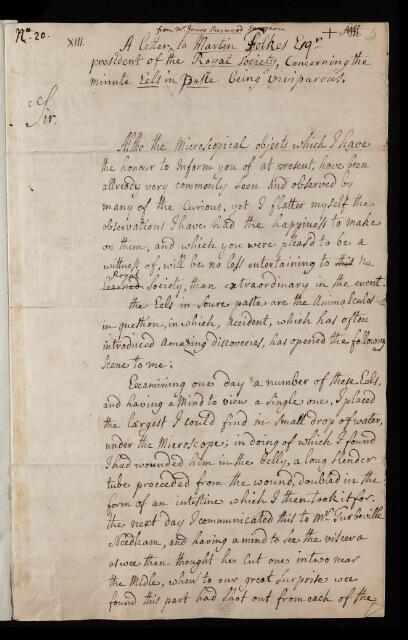 No. 20.
from Mr. James Sherwood Surgeon
XIII.
A Letter to Martin Folkes Esqr.
president of the Royal Society, Concerning the
minute Eels in Paste being viviparous.
Sir.
Altho the Microscopical objects which I have
the honour to Inform you of at present, have been
allready very commonly seen and observed by
many of the Curious, yet I flatter myself the
observations I have had the happiness to make
on them, and which you were pleas'd to be a
wittness of, will be no less entertaining to this the
Royal
learned Society, than extraordinary in the event.
the Eels in soure paste are the Animalcules
in question, in which, accident, which has often
introduced amazing discoveries, has opened the following
scene to me;
Examining one day a number of these Eels,
and having a Mind to view a single one, I placed
the largest I could find in small drop of water,
under the Microscope; in doing of which I found
I had wounded him in the belly, a long slender
tube proceeded from the wound, doubled in the
form of an intestine which I then took it for.
the next day I communicated this to Mr. Turbeville
Needham, and having a mind to see the viscera
as wee then thought he Cut one in two near
the Midle, when to our great surprise wee
found this part had shot out from each of the